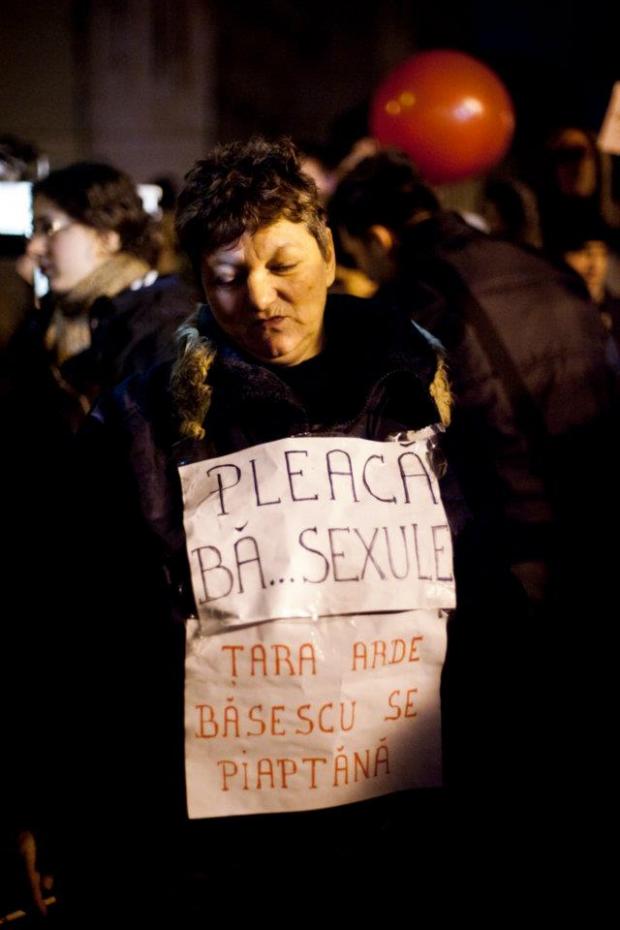 PLEACĂ
BĂ...SEXULE
ȚARA ARDE
BĂSESCU SE
PIAPTĂNĂ